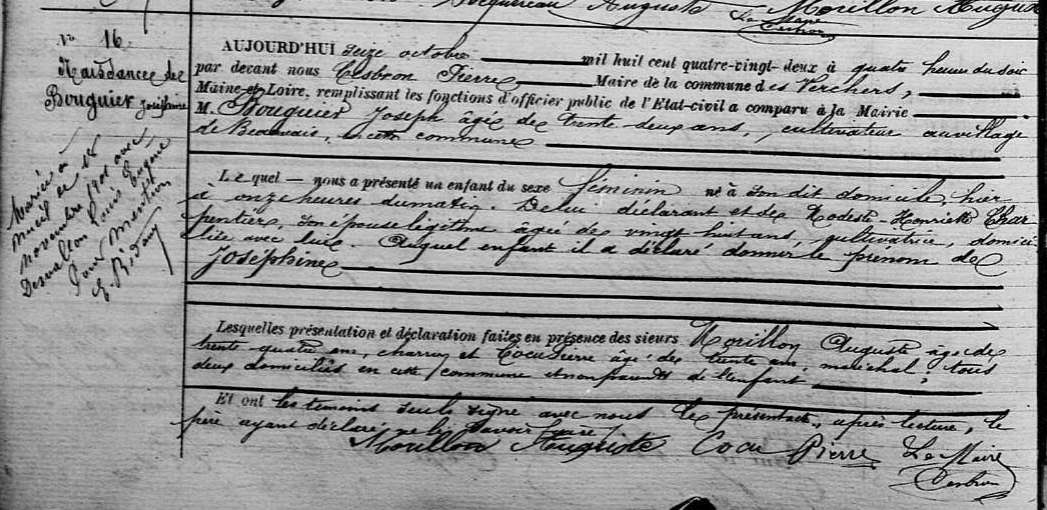 Auguste Morillon Auguste
Le Maire
Cesbron
N° 16
Naissance de
Bouguier Joséphine
Mariée à
Nueil le 18
novembre 1901 avec
Louis Eugène
Pour mention
AUJOURD'HUI seize octobre mil huit cent quatre-vingt-deux à quatre heures du soir
par devant nous Cesbron Pierre Maire de la commune des Verchers,
Maine-et-Loire, remplissant les fonctions d'officier public de l'Etat-civil a comparu à la Mairie
M. Bouguier Joseph âgé de trente deux ans, cultivateur au village
de Beauvais, en cette commune
Lequel nous a présenté un enfant du sexe féminin né à son dit domicile, hier
à onze heures du matin. De lui déclarant et de Modeste Henriette Char-
pentier, son épouse légitime âgée de vingt huit ans, cultivatrice, domici-
liée avec lui. Auquel enfant il a déclaré donner le prénom de
Joséphine
Lesquelles présentation et déclaration faites en présence des sieurs Morillon Auguste âgé de
trente quatre ans, charron et Cocu Pierre âgé de trente ans, maréchal, tous
deux domiciliés en cette commune et non parents de l'enfant
Et ont les témoins seuls signé avec nous le présent acte, après lecture, le
père ayant déclaré ne le savoir faire.
Morillon Auguste Cocu Pierre Le Maire
Cesbron